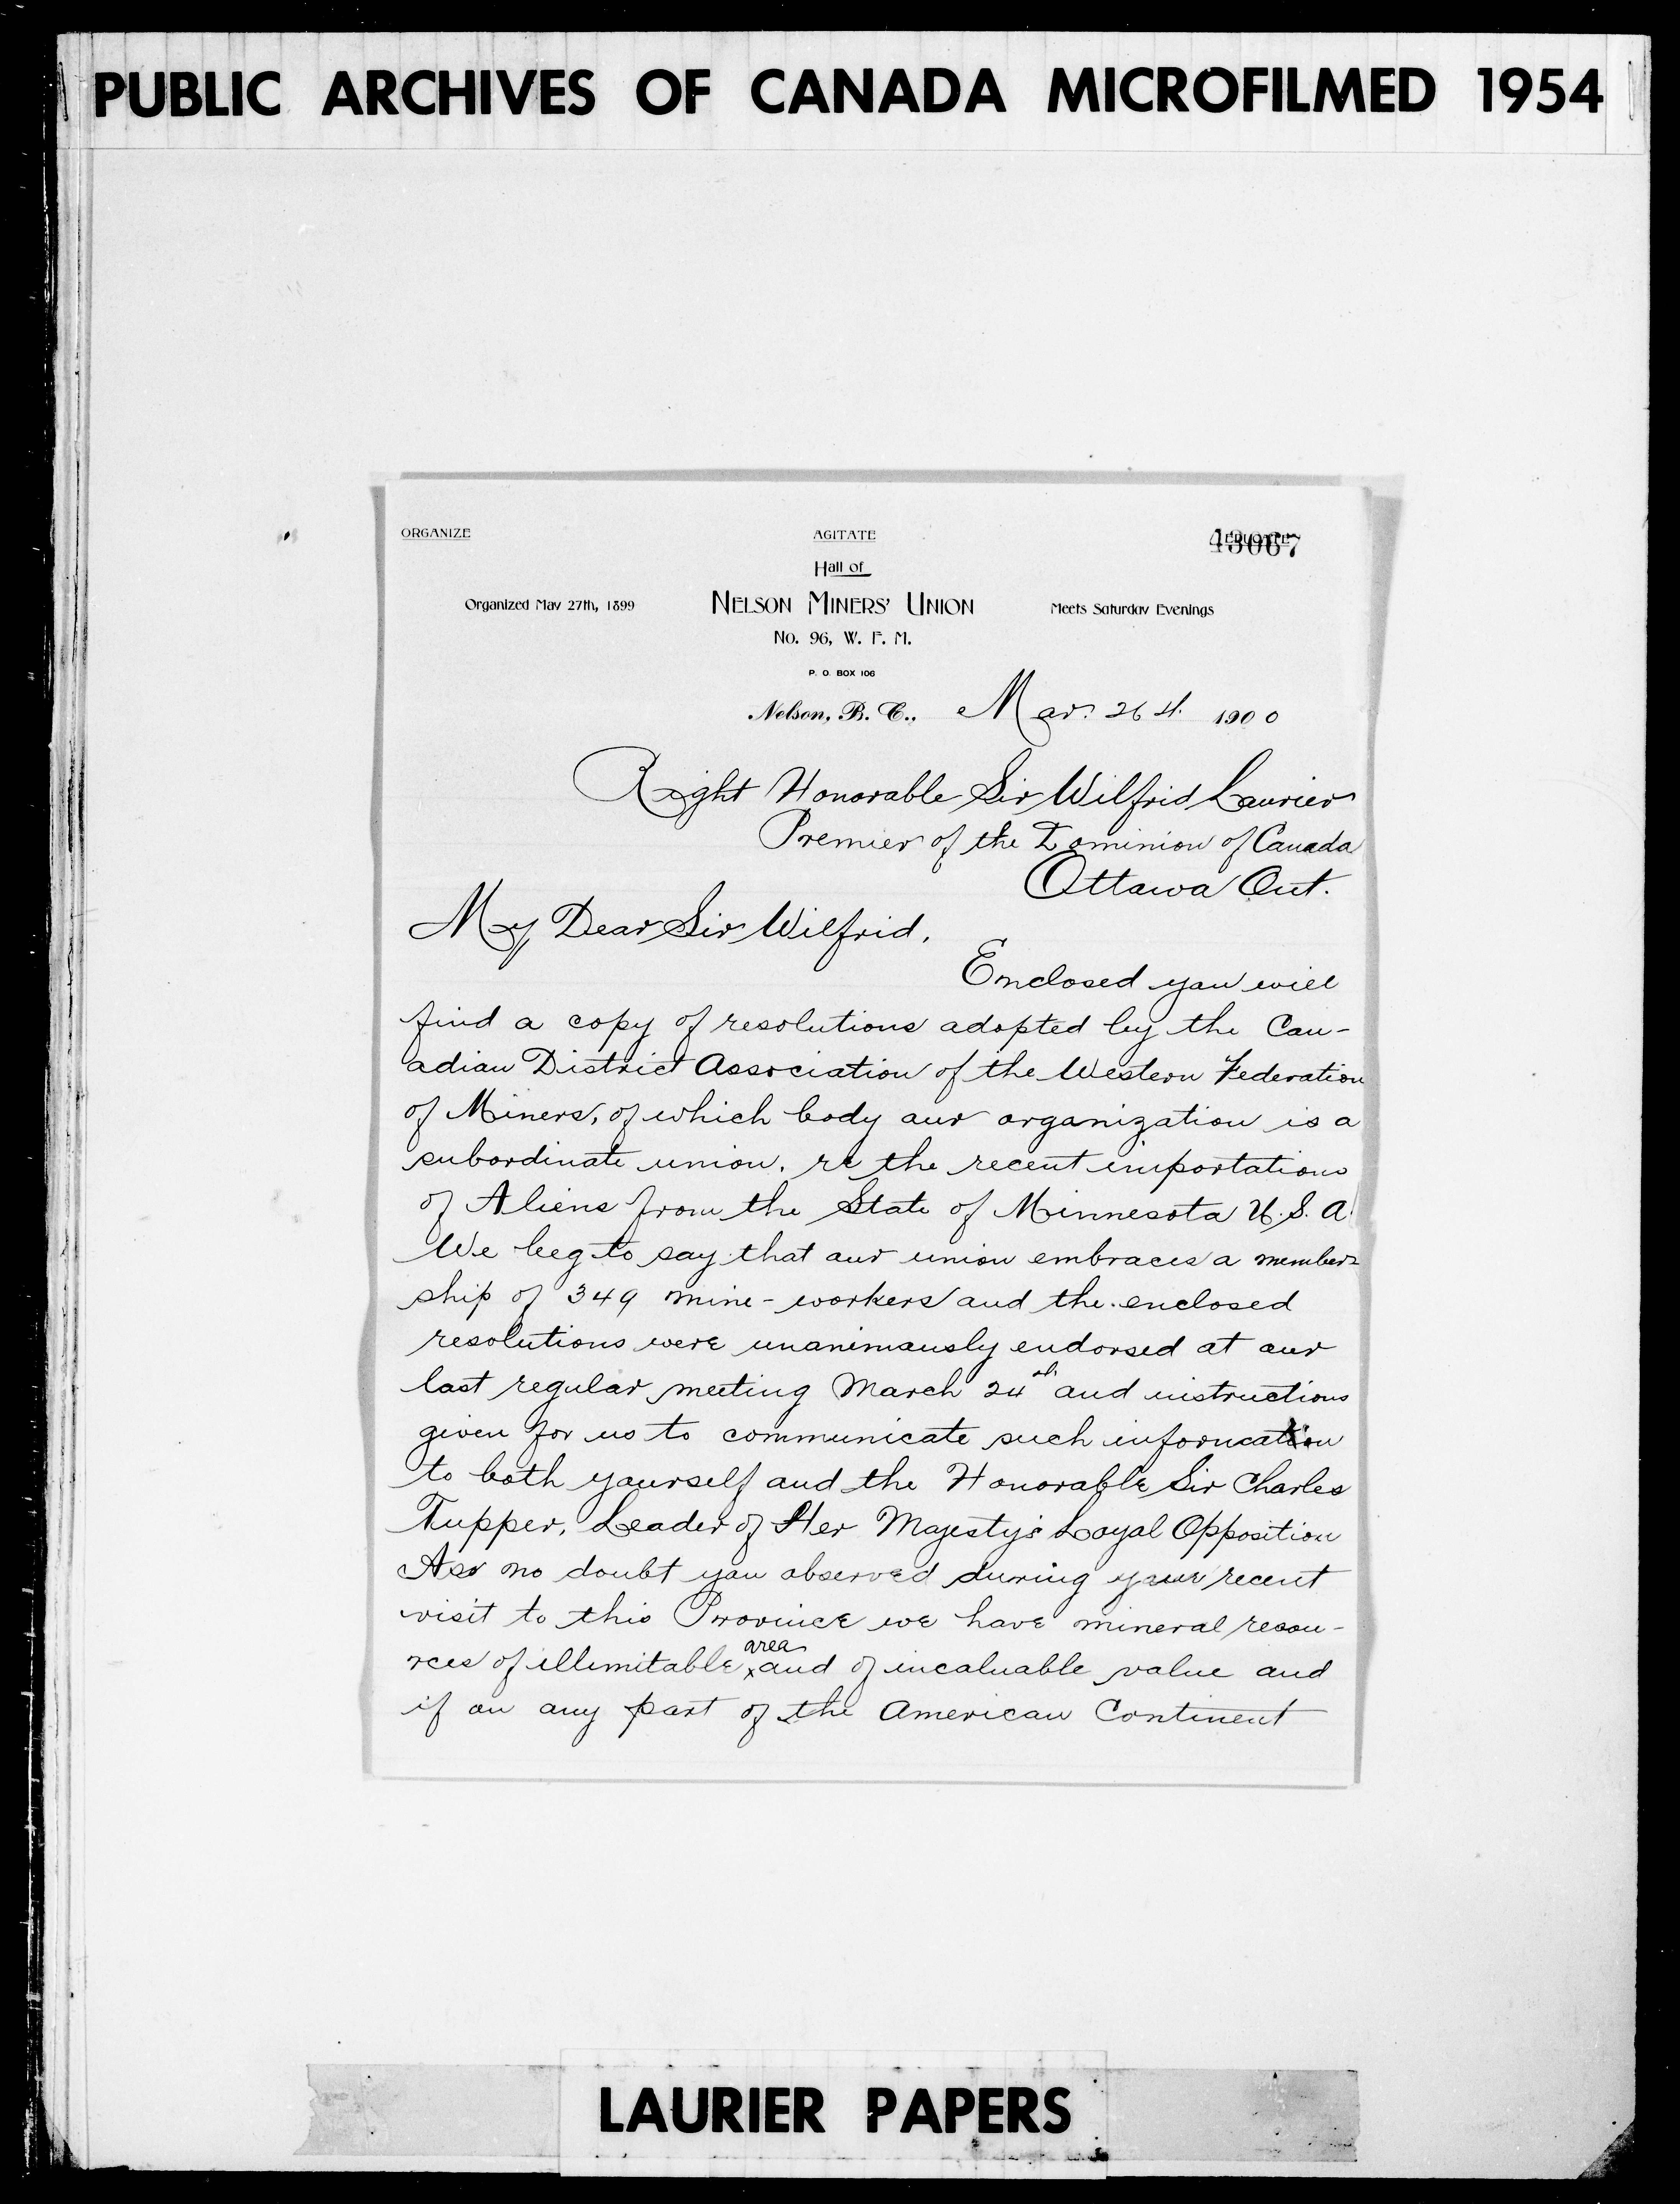 PUBLIC ARCHIVES OF CANADA MICROFILMED 1954
ORGANIZE AGITATE 43067
Hall of
Organized May 27th, 1899 NELSON MINERS' UNION Meets Saturday Evenings
No. 96, W. F. M.
P. O. BOX 106
Nelson, B. C., Mar. 26th 1900
Right Honorable Sir Wilfrid Laurier
Premier of the Dominion of Canada
Ottawa Ont.
My Dear Sir Wilfrid,
Enclosed you will
find a copy of resolutions adopted by the Can-
adian District Association of the Western Federation
of Miners, of which body our organization is a
subordinate union, re the recent importations
of Aliens from the State of Minnesota U.S.A.
We beg to say that our union embraces a member-
ship of 349 mine-workers and the enclosed
resolutions were unanimously endorsed at our
last regular meeting March 24th and instructions
given for us to communicate such information
to both yourself and the Honorable Sir Charles
Tupper, Leader of Her Majesty's Loyal Opposition
As no doubt you observed during your recent
visit to this Province we have mineral resou-
rces of illimitable area and of incaluable value and
if on any part of the American Continent
LAURIER PAPERS